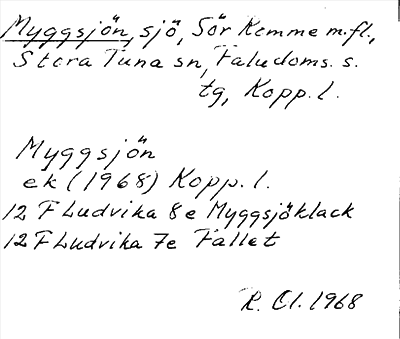 Myggsjön, sjö, Sör Romme m.fl.,
Stora Tuna sn, Faludoms. s.
tg, Kopp. l.
Myggsjön
ek (1968) Kopp. l.
12 F Ludvika 8e Myggsjöklack
12 F Ludvika 7e Fallet
R. Cl. 1968